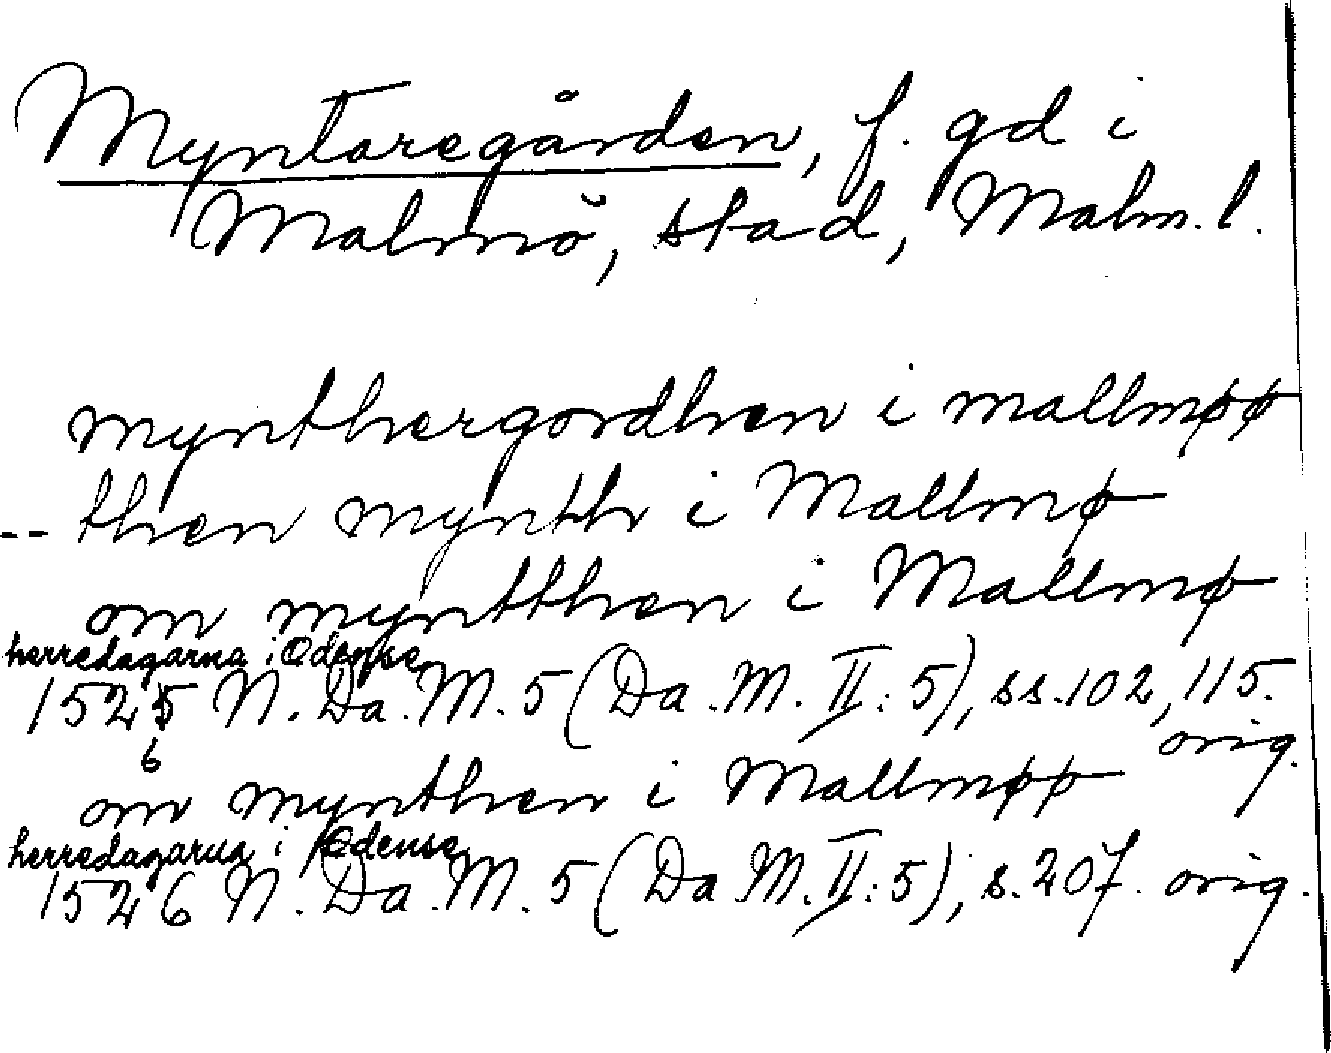 Myntaregården, f. gd i
Malmö, stad, Malm. l.
mynthergordhen i mallmøø
-- then mynth i Mallmø
om myntthen i Mallmø
herredagarna i Odense
1525 N. Da. M. 5 (Da. M. II: 5), ss. 102, 115.
6
orig.
om mynthen i Mallmøø
herredagarna i Odense
1526 N. Da. M. 5 (Da. M. II: 5), s. 207. orig.